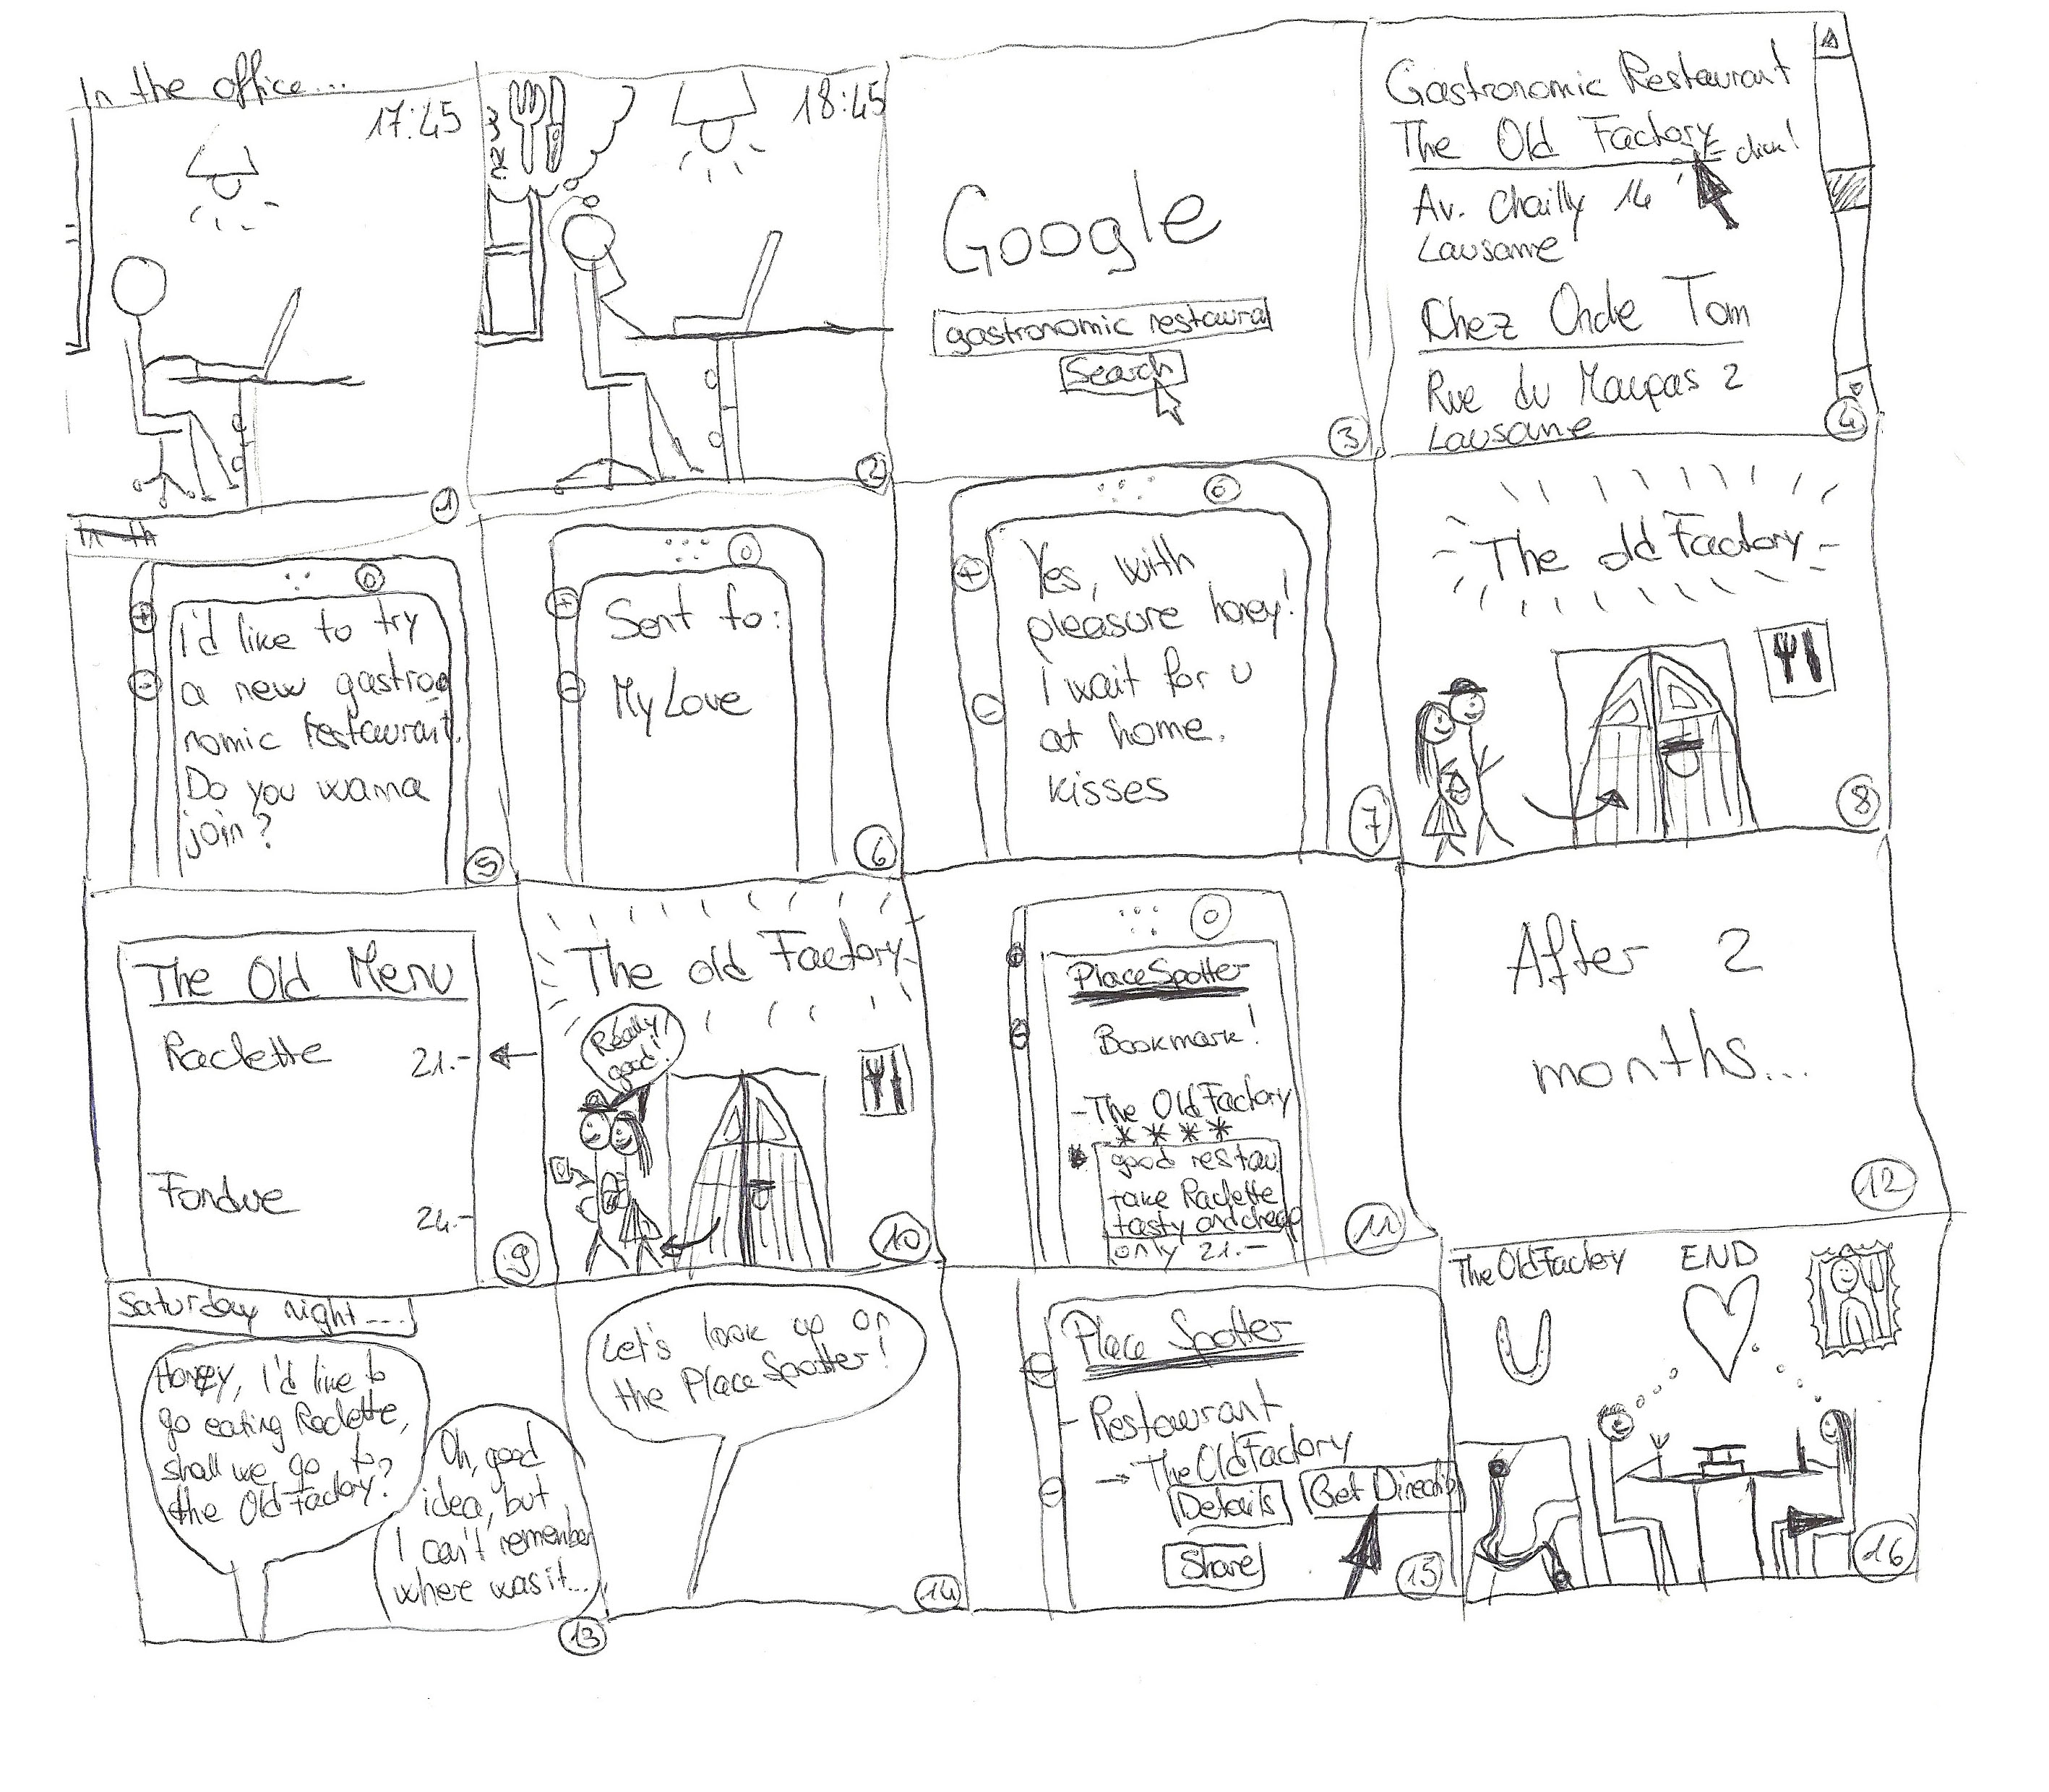 In the office...
17:45
1
18:45
2
Google
gastronomic restaura
Search
3
Gastronomic Restaurant
The Old Factory
click!
Av. Chailly 14
Lausanne
Chez Oncle Tom
Rue du Maupas 2
Lausanne
4
I'd like to try
a new gastro
nomic restaurant.
Do you wanna
join?
5
Sent to:
My Love
6
Yes, with
pleasure honey!
I wait for u
at home.
kisses
7
The old Factory
8
The Old Menu
Raclette 21.-
Fondue 24.-
9
The old Factory
Really
good!
10
PlaceSpotter
Bookmark!
- The Old Factory
****
good restau
take Raclette
tasty and cheap
only 21.-
11
After 2
months...
12
Saturday night...
Honey, I'd like to
go eating Raclette,
shall we go to
the Old Factory?
Oh, good
idea, but
I can't remember
where was it...
13
Let's look up on
the PlaceSpotter!
14
Place Spotter
- Restaurant
→ The Old Factory
Details
Get Directio
Share
15
The Old Factory
END
16